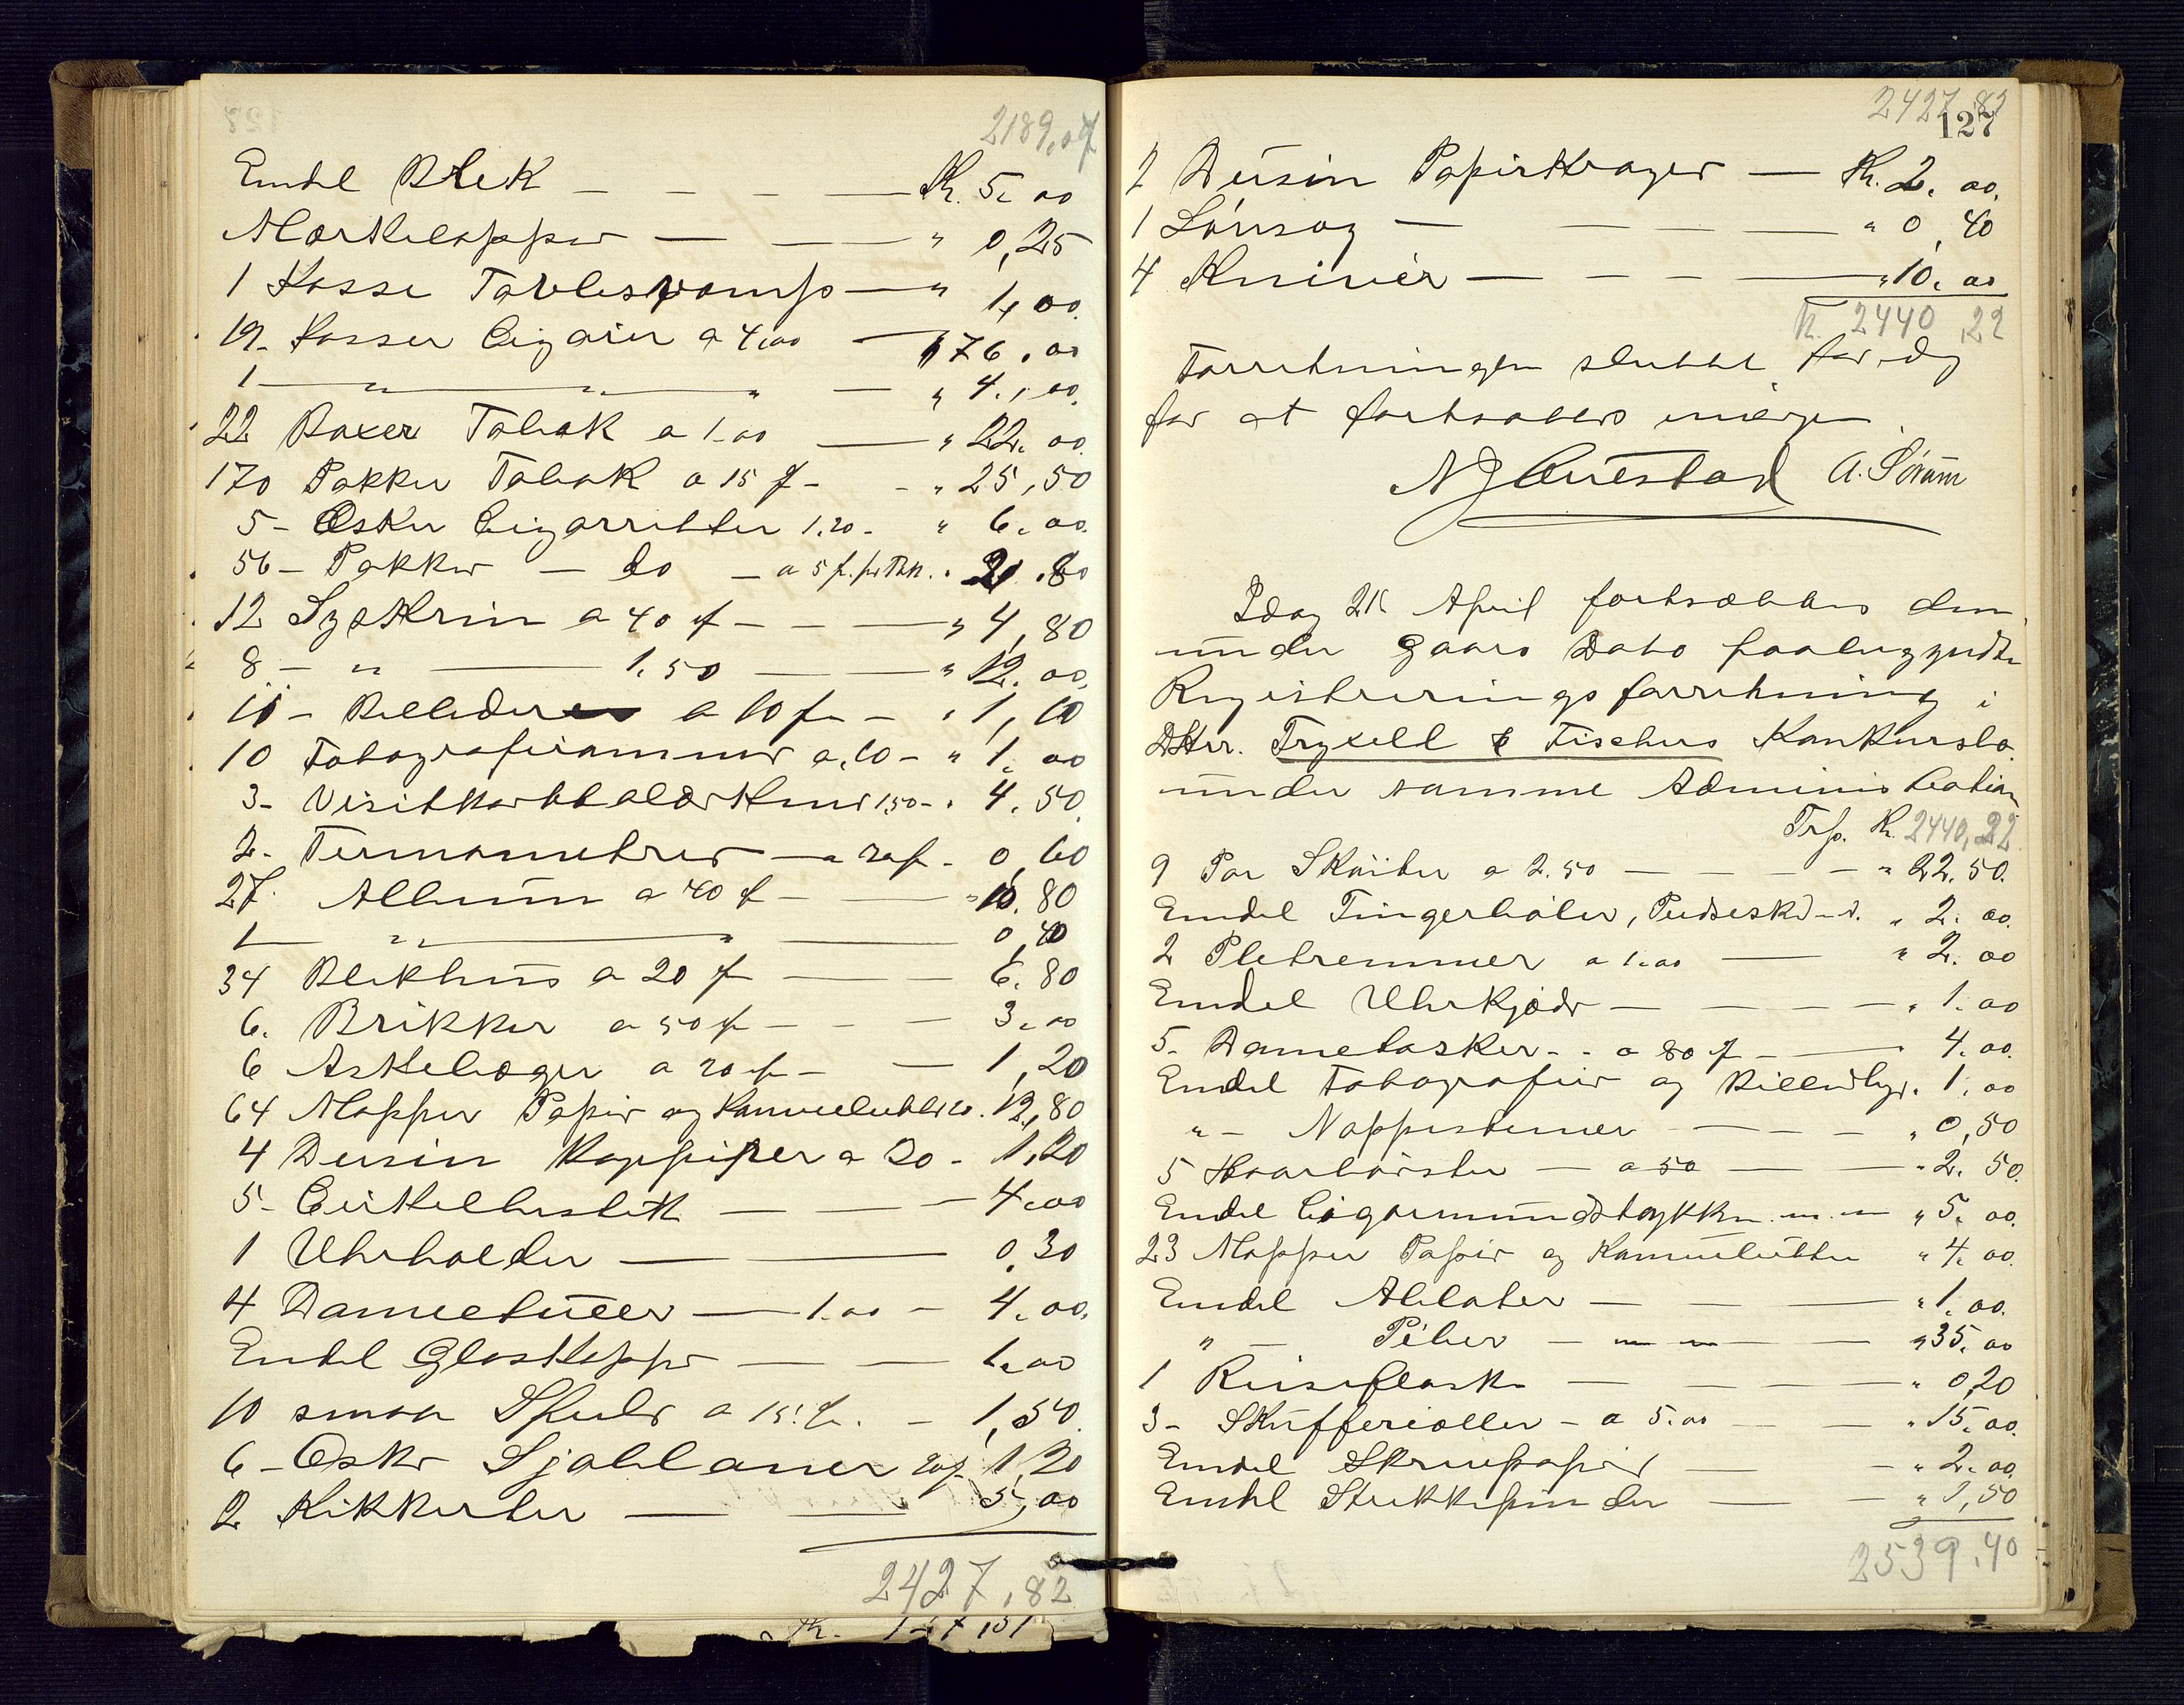 2189,07
Endel Blek — — — — Kr. 5. 00
Mærkelapper — — — " 0,25
1 Kasse Tavlesvamp — " 1,00
19 - Kasser Cigarer a 4,00 — 76,00
1 — " — " — " — " 4,00
22 Boxer Tabak a 1.00 — " 22.00
170 Pakker Tobak a 15 ø - - " 25,50
5 - Æsker Cigarretter 1.20 - " 6.00
56 - Pakker — do — a 5 ø. pr Pk. " 2,80
12 Syskrin a 40 ø - - — " 4,80
8 - " — 1.50 — " 12.00
11 - Billeder a 10 ø - " 1,10
10 Fotografirammer a.10 - " 1.00
3 - Visitkort 1,50 - " 4.50
2 - Termometrer — - 0,60
27. Album a 40 ø - — " 10.80
1 — " — " — 0,40
34 Blekhus a 20 ø — 6.80
6. Brikker a 50 ø - - — 3.00
6 Askebæger a 20 ø - — 1,20
64 Mapper Papir og Konvelutter 20. 12,80
4 Dusin a 30 - 1,20
5 - Cirkelbestik — — — 4.00
1 Uhrholder — — 0.30
4 — 1.00 - 4.00.
Endel Glaskopper — — 1.00
10 smaa Speile a 15 ø. - 1,50
6 - Æsker 20 ø 1,20
2 Kikkerter — — 5,00
2427,82
Kr.
2427,82
127
2 Dusin Papirkraver — Kr. 2.00
1 Løvsag — — — " 0,40
4 Kniver — - - — " 10.00
Kr. 2440,22
Forretningen sluttet for idag
for at fortsættes imorgen.
N J Auestad A. Sørum
Idag 21 April fortsættes den
under Gaars Dato paabegyndte
Registreringsforretning i
DHrr. Tryxell & Fischers Konkursbo
under samme Administration
Trsp. Kr. 2440,22
9 Par Skøiter a 2.50 — - - - " 22.50.
Endel Fingerbøler, " 2.00.
2 a 1.00 — " 2.00
Endel Uhrkjæder — - - - " 1.00
5 - Dametasker - - a 80 ø - — 4.00.
Endel Fotografier og 1.00
" - — - - " 0,50
5 Haarbørster — a 50 — — " 2.50.
Endel Cigarmundstykker m. m — " 5.00.
23 Mapper Papir og Konvelutter " 4.00.
Endel Oblater — — — " 1.00.
" - Piber — — — " 35.00
1 Reiseflaske — — — " 0,20
3 - Skufferioller - a 5.00 — — " 15.00.
Endel Skrivepapir — - " 2.00
Endel Strikkepinder — — " 1,50
2539,40